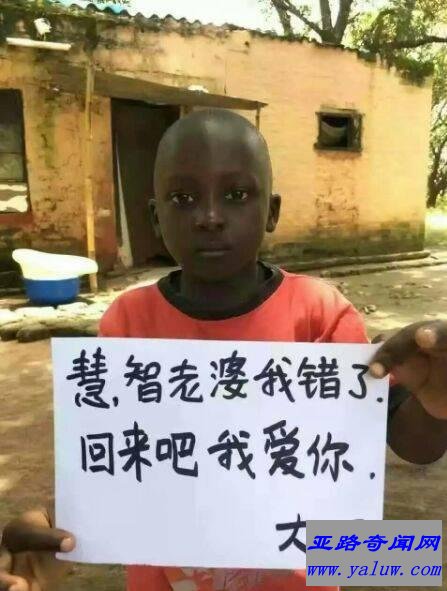 慧,智老婆我错了.
回来吧我爱你.
大
亚路奇闻网
www.yaluw.com